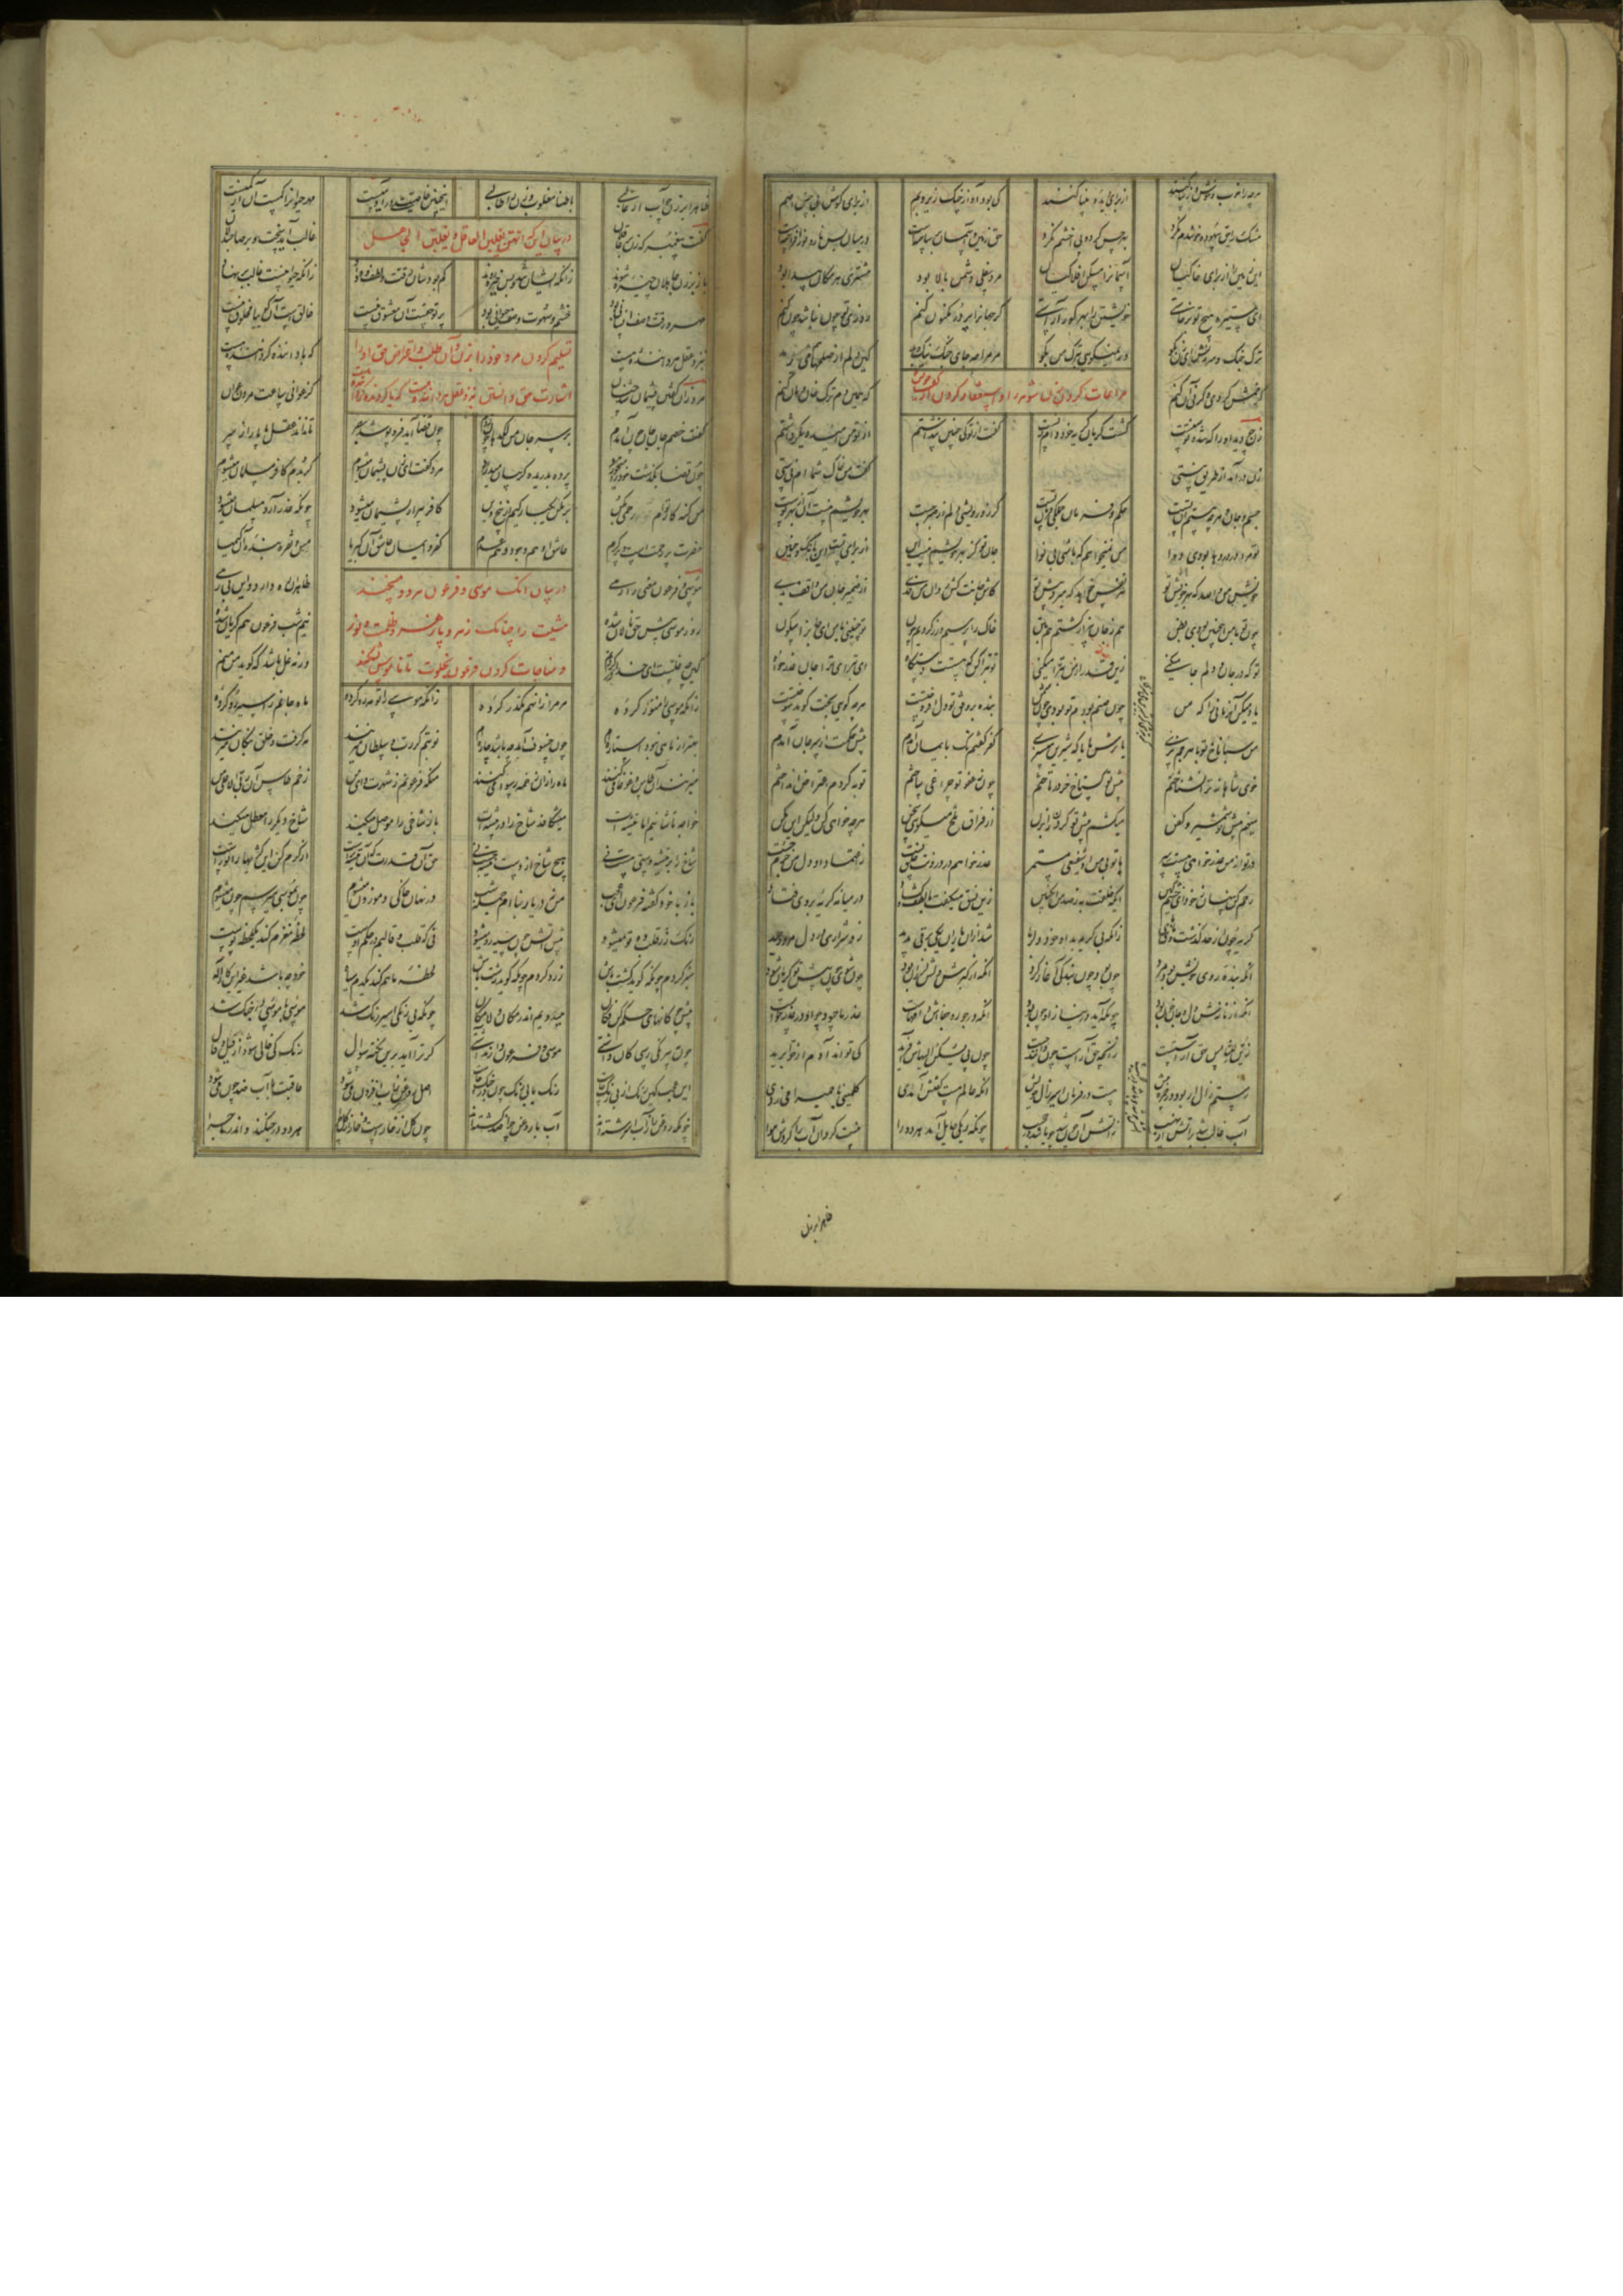 هرچه را خوب و خوش و زیبا کنند از برای دیده بینا کنند کی بود آواز چنگ زیر و بم از برای گوش بی حس اصم
مشک را حق بیهوده خوشدم نکرد بهر حس کرد و پی اخشم نکرد حق زمین و آسمان بر ساختست در میان بس نار و نور افراختست
این زمین را از برای خاکیان آسمانرا مسکن افلاکیان مرد سفلی دشمن بالا بود مشتری هر مکان پیدا بود
ای ستیره هیچ تو برخاستی خویشتن را بهر کور آراستی گر جهانرا پر در مکنون کنم روزی تو چون نباشد چون کنم
ترک جنگ و سرزنش ای زن بگو ور نمیگویی بترک من بگو مر مرا چه جای جنگ نیک و بد کین دلم از صلحها هم می رمد
گر خمش کردی و گر نی آن کنم که همین دم ترک خان و مان کنم
مراعات کردن زن شوهر را و استغفار کردن از گفت خویش
زن چو دید او را که تند و توسنست گشت گریان گریه خود دام زنست گفت از تو کی چنین پنداشتم از تو من امید دیگر داشتم
زن در آمد از طریق نیستی گفت من خاک شما ام نی ستی
جسم و جان و هرچه هستم آن تست حکم و فرمان جملگی فرمان تست گر ز درویشی دلم از صبر جست بهر خویشم نیست آن بهر توست
تو مرا در دردها بودی دوا من نمیخواهم که باشی بی نوا جان تو کز بهر خویشم نیست این از برای تست این بانگ و حنین
خویش من والله که بهر خویش تو هر نفس خواهد که میرد پیش تو کاش جانت کش روان من فدی از ضمیر جان من واقف بدی
چون تو با من این چنین بودی بظن هم ز جان بیزار گشتم هم ز تن خاک را بر سیم و زر کردیم چون تو چنینی با من ای جان را سکون
تو که در جان و دلم جا میکنی زین قدر از من تبرا میکنی تو تبرا کن که هستت دستگاه ای تبرای ترا جان عذرخواه
یاد میکن آن زمانی را که من چون صنم بودم تو بودی چون شمن بنده بر وفق تو دل افروختست هرچه گویی پخت گوید سوختست
من سپاناخ تو با هرچم پزی یا ترش با یا که شیرین میسزی کفر گفتم نک بایمان آمدم پیش حکمت از سر جان آمدم
خوی شاهانه ترا نشناختم پیش تو گستاخ خر در تاختم چون ز عفو تو چراغی ساختم توبه کردم اعتراض انداختم
مینهم پیش تو شمشیر و کفن میکشم پیش تو گردن را بزن از فراق تلخ میگویی سخن هرچه خواهی کن ولیکن این مکن
در تو از من عذرخواهی هست سر با تو بی من او شفیعی مستمر عذر خواهم در درونت خلق تست ز اعتماد او دل من جرم جست
رحم کن پنهان ز خود ای خشمگین ایکه خلقت به ز صد من انگبین زین نسق میگفت با لطف و گشاد در میانه گریه بر وی فتاد
گریه چون از حد گذشت و های های زانکه بی گریه بد او خود دلربا شد از ان باران یکی برقی پدید زد شراری در دل مرد وحید
انکه بنده روی خوبش بود مرد چون بود چون بندگی آغاز کرد انکه از کبرش دلت لرزان بود چون شوی چون پیش تو گریان شود
انکه از نازش دل و جان خون بود چونکه آید در نیاز او چون بود انکه در جور و جفااش دام ماست عذر ما چه بود چو او در عذر خاست
زین للناس حق آراستست زانچه حق آراست چون دانند جست چون پی یسکن الیهاش آفرید کی تواند آدم از حوا برید
رستم زال ار بود وز حمزه بیش هست در فرمان اسیر زال خویش انکه عالم مست گفتش آمدی کلمینی یا حمیرا می زدی
آب غالب شد بر آتش از نهیب زاتش آن جوشد چو باشد در حجیب چونکه دیگی حایل آمد هر دو را نیست کرد آن آب را کردش هوا
ظاهرا بر زن
ظاهرا بر زن چو آب ار غالبی باطنا مغلوب و زن را طالبی اینچنین خاصیتی در آدمیست مهر حیوانرا کمست آن از کمیست
در بیان این که انهن یغلبن العاقل و یغلبهن الجاهل
گفت پیغمبر که زن بر عاقلان غالب آید سخت و بر صاحب دلان
باز بر زن جاهلان چیره شوند زانکه ایشان تند و بس خیره روند کم بودشان رقت و لطف و وداد زانکه حیوانیست غالب بر نهاد
مهر و رقت وصف انسانی بود خشم و شهوت وصف حیوانی بود پرتو حقست آن معشوق نیست خالقست آن گوییا مخلوق نیست
تسلیم کردن مرد خود را بزن و آن طلب و اعتراض حق او را
اشارت حق دانستن بنزد عقل هر داننده هست که با گردنده گرداننده هست
بنزد عقل هر داننده هست که با گردنده گرداننده هست
مرد زان گفتن پشیمان شد چنان کز عوانی ساعت مردن عوان
گفت خصم جان جان چون آمدم بر سر جان من لگدها چون زدم چون قضا آید فرو پوشد بصر تا نداند عقل ما پا را ز سر
چون قضا بگذشت خود را میخورد پرده بدریده گریبان میدرد مرد گفت ای زن پشیمان میشوم گر بدم کافر مسلمان میشوم
من گنه کار توام رحمی بکن بر مکن یکبارگیم از بیخ و بن کافر پیر ار پشیمان میشود چونکه عذر آرد مسلمان میشود
حضرت پر رحمتست و پر کرم عاشق او هم وجود و هم عدم کفر و ایمان عاشق آن کبریا مس و نقره بنده آن کیمیا
در بیان انک موسی و فرعون هر دو مسخرند
مشیت را چنانک زهر و پازهر و ظلمت و نور
و مناجات کردن فرعون بخلوت تا ناموس نشکند
موسی و فرعون معنی را رهی ظاهر آن ره دارد و این بی رهی
روز موسی پیش حق نالان شده نیم شب فرعون هم گریان شده
کین چه غلست ای خدا بر گردنم ورنه غل باشد که گوید من منم
زانکه موسی را منور کرده مر مرا زان هم مکدر کرده زانکه موسی را تو مه رو کرده ماه جانم را سیه رو کرده
بهتر از ماهی نبود استاره ام چون خسوف آمد چه باشد چاره ام نوبتم گر رب و سلطان میزنند مه گرفت و خلق پنگان میزنند
میزنند آن طاس و غوغا میکنند ماه را زان زخمه رسوا میکنند منکه فرعونم ز شهرت وای من زخم طاس آن ربی الاعلای من
خواجه تاشانیم اما تیشه ات میشکافد شاخ را در بیشه ات باز شاخی را موصل میکند شاخ دیگر را معطل میکند
شاخ را بر تیشه دستی هست نی هیچ شاخ از دست تیشه رست نی حق آن قدرت که آن تیشه تراست از کرم کن این کژیها را تو راست
باز با خود گفته فرعون ای عجب من نه در یا ربنا ام جمله شب در نهان خاکی و موزون میشوم چون بموسی میرسم چون میشوم
رنگ زر قلب ده تو میشود پیش آتش چون سیه رو میشود نی که قلب و قالبم در حکم اوست لحظه مغزم کند یکلحظه پوست
سبز گردم چونکه گوید کشت باش زرد گردم چونکه گوید زشت باش لحظه ماهم کند یکدم سیاه خود چه باشد غیر این کار اله
پیش چوگانهای حکم کن فکان میدویم اندر مکان و لامکان چونکه بی رنگی اسیر رنگ شد موسیی با موسیی در جنگ شد
چون به بی رنگی رسی کان داشتی موسی و فرعون دارند آشتی گر ترا آید برین نکته سوال رنگ کی خالی شود از قیل و قال
این عجب کین رنگ از بی رنگ خاست رنگ با بی رنگ چون در جنگ خاست اصل روغن ز آب افزون میشود عاقبت با آب ضد چون میشود
چونکه روغن را ز آب اسرشته اند آب با روغن چرا ضد گشته اند چون گل از خارست و خار از گل چرا هر دو در جنگند و اندر ماجرا